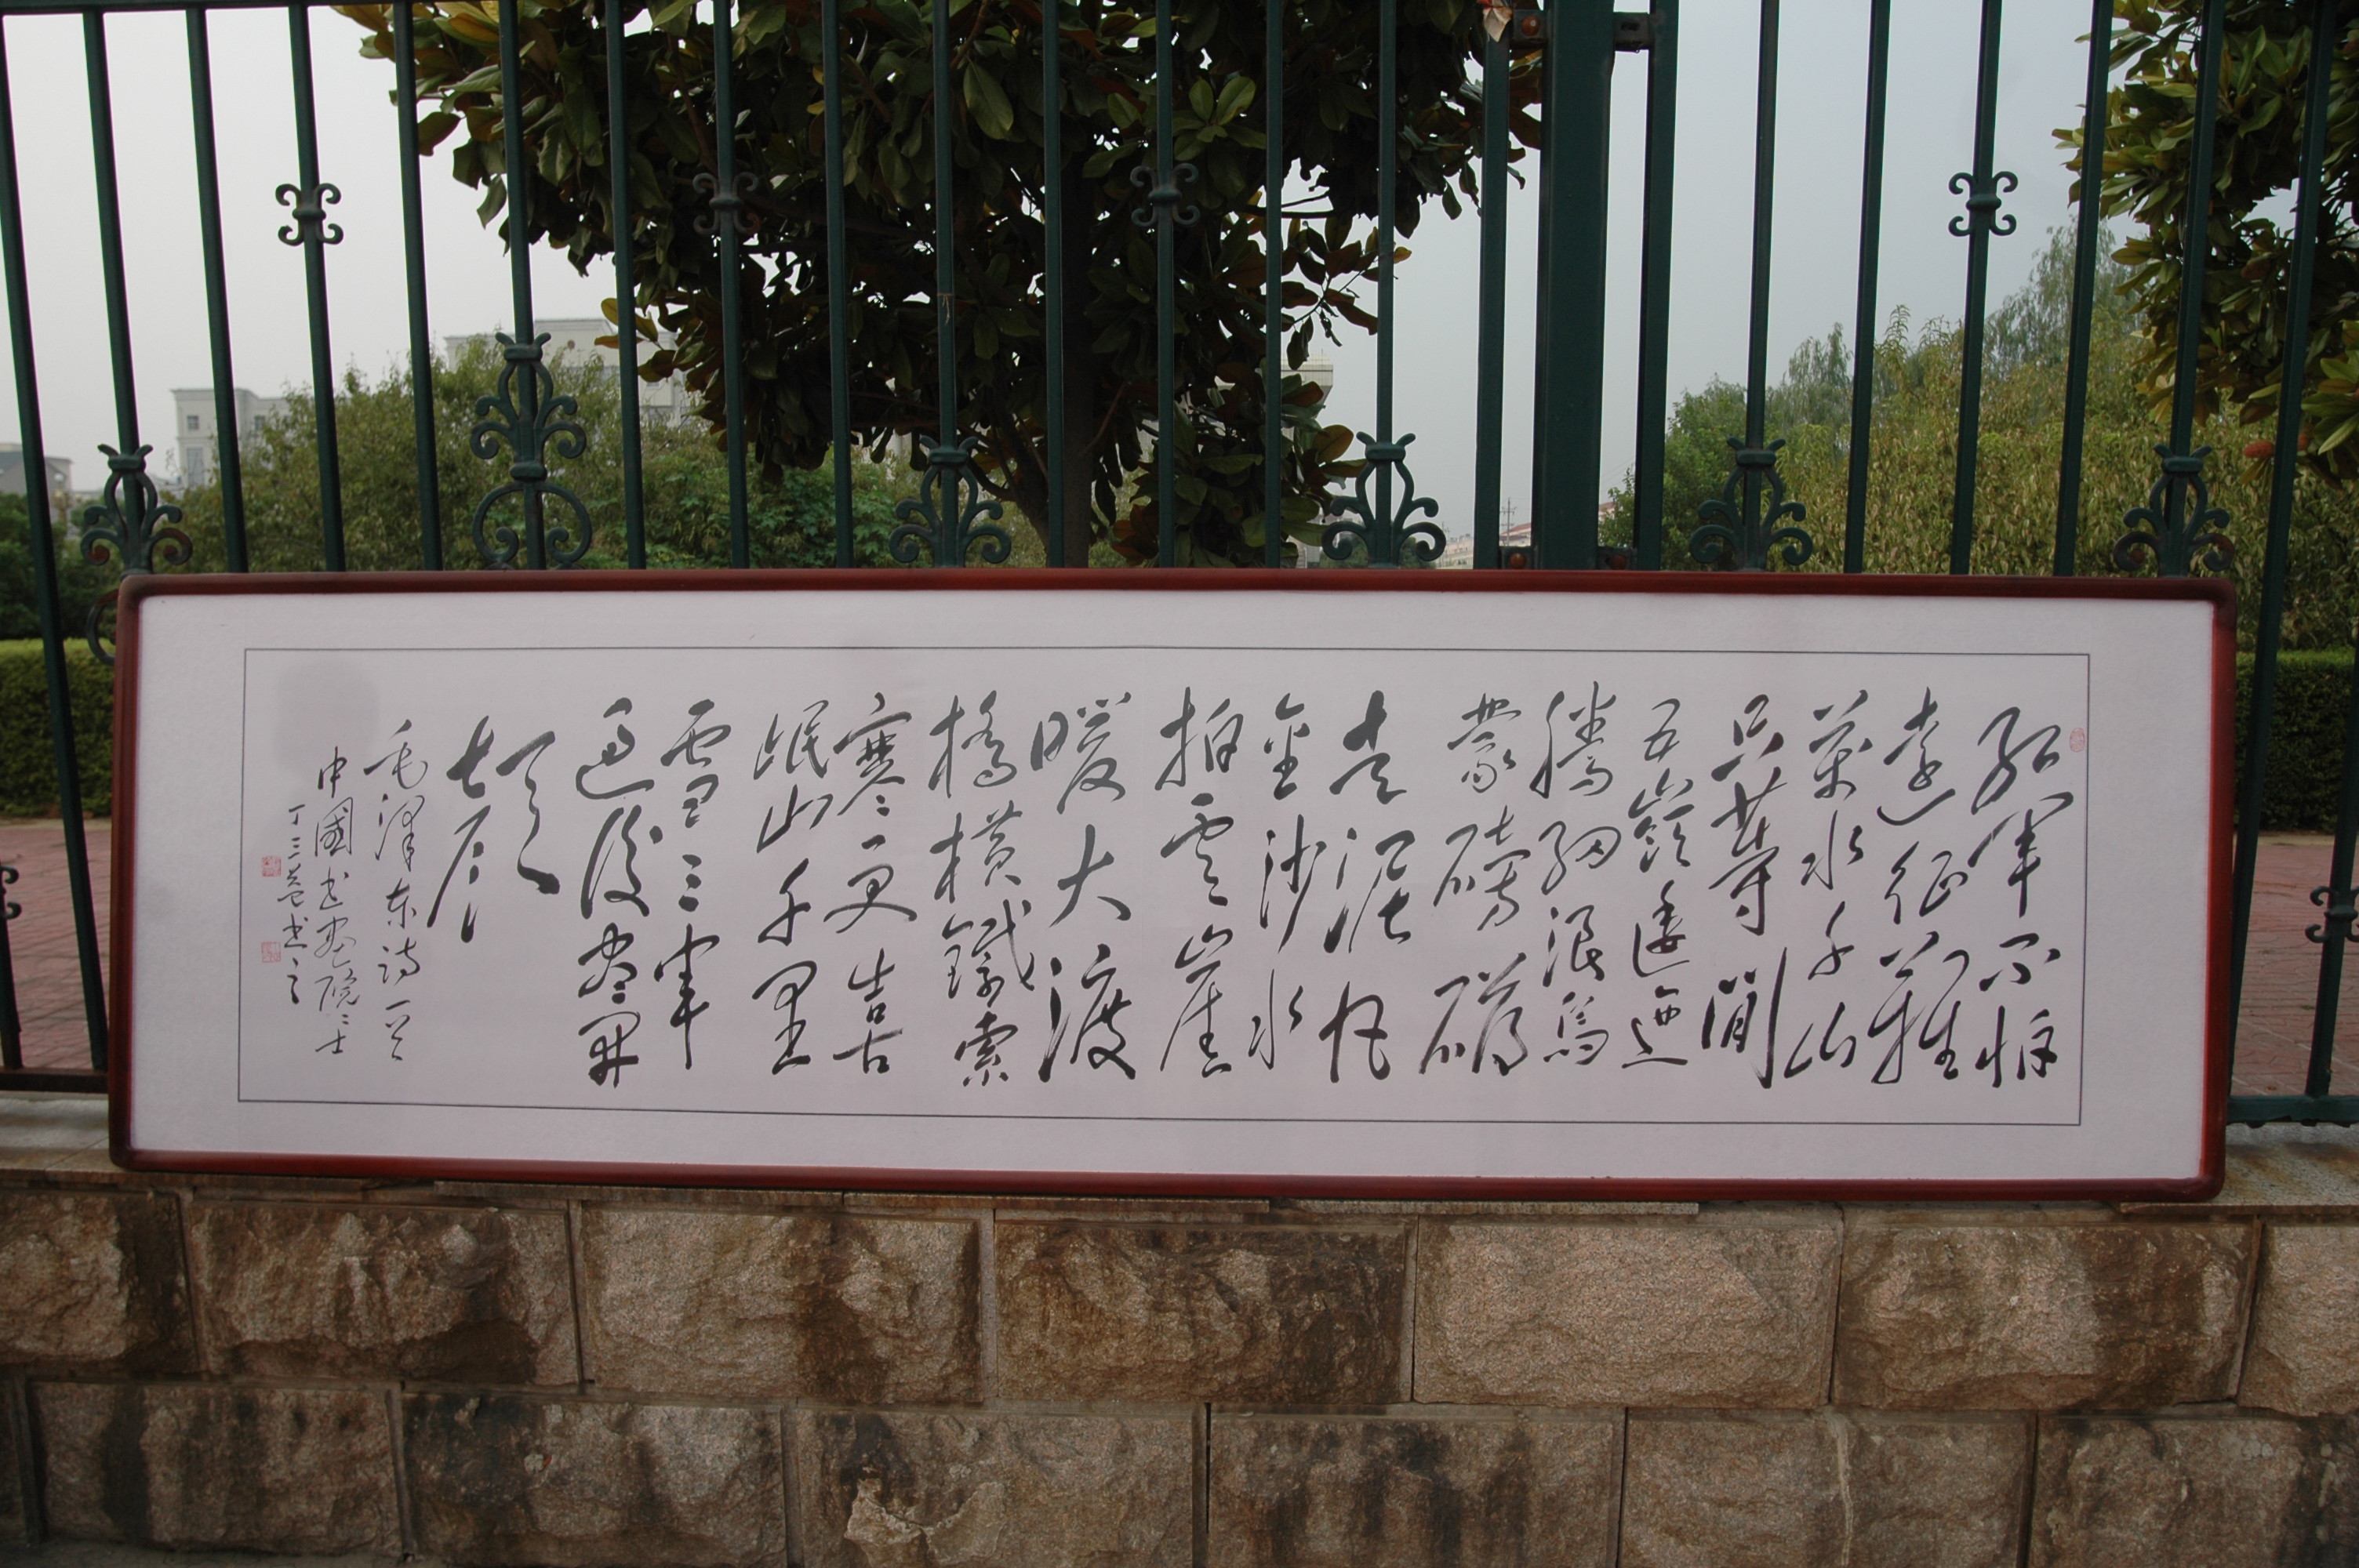 紅軍不怕
遠征難
萬水千山
只等閒
五嶺逶迤
騰細浪烏
蒙磅礴
走泥丸
金沙水
拍雲崖
暖大渡
橋橫鐵索
寒更喜
岷山千里
雪三軍
過後盡開
顏
毛澤东詩一首
中國書畫院院士
書之